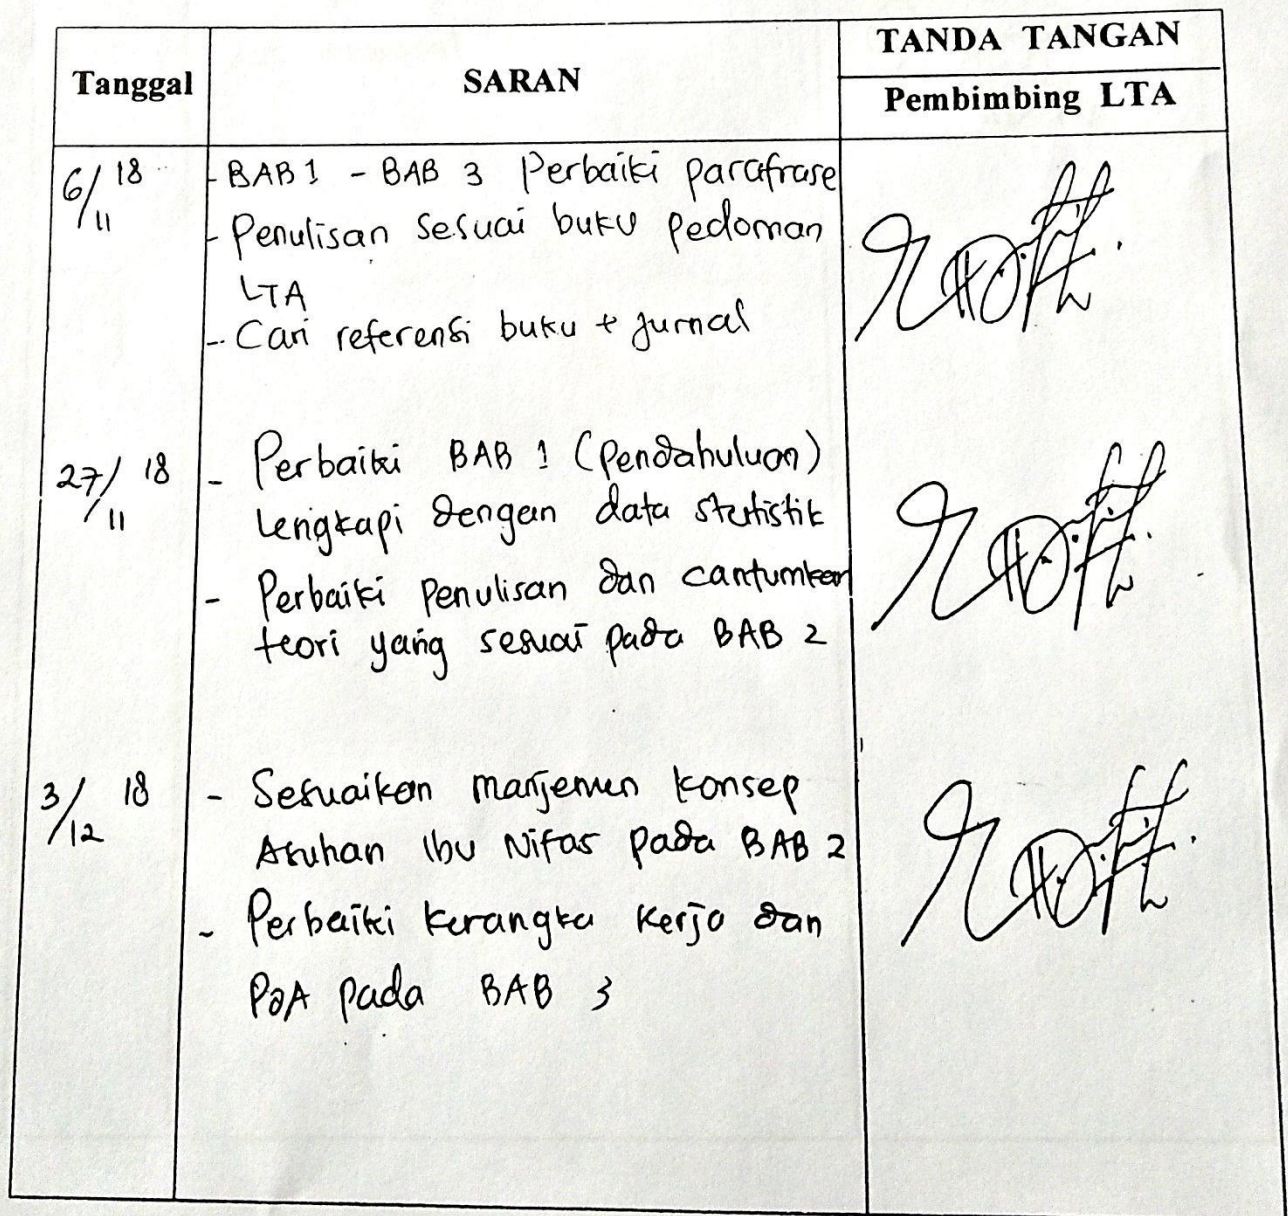 Tanggal
SARAN
TANDA TANGAN
Pembimbing LTA
6/11 18
- BAB 1 - BAB 3 Perbaiki parafrase
- Penulisan sesuai buku pedoman
LTA
- Cari referensi buku + jurnal
27/11 18
- Perbaiki BAB 1 (Pendahuluan)
Lengkapi dengan data statistik
- Perbaiki penulisan dan cantumkan
teori yang sesuai pada BAB 2
3/12 18
- Sesuaikan manjemen konsep
Asuhan Ibu Nifas pada BAB 2
- Perbaiki kerangka kerja dan
POA pada BAB 3